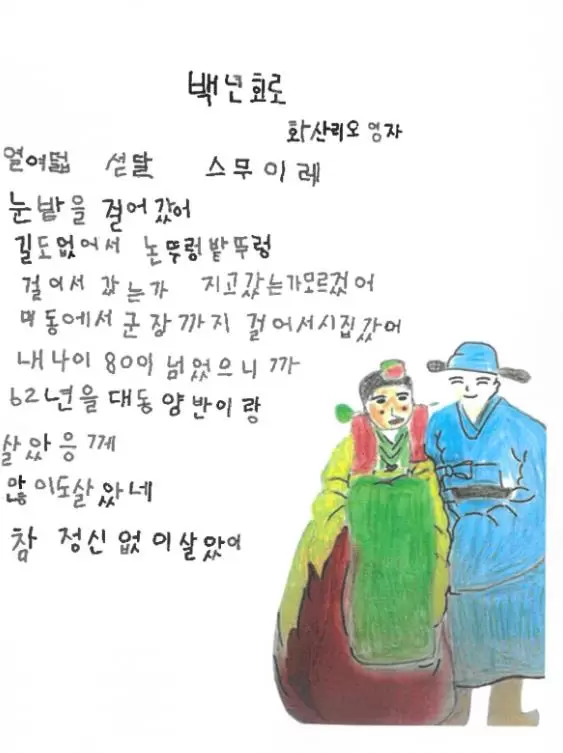 백년회로
화산리오 영자
열여덟 섣달 스무이레
눈밭을 걸어갔어
길도없어서 논뚜렁밭뚜렁
걸어서 갔는가 지고갔는가모르겄어
동에서군장까지 걸어서시집갔어
내나이 80이 넘었으니까
62년을대동양반이랑
살았응께
많이도살았네
참 정신없이살았어